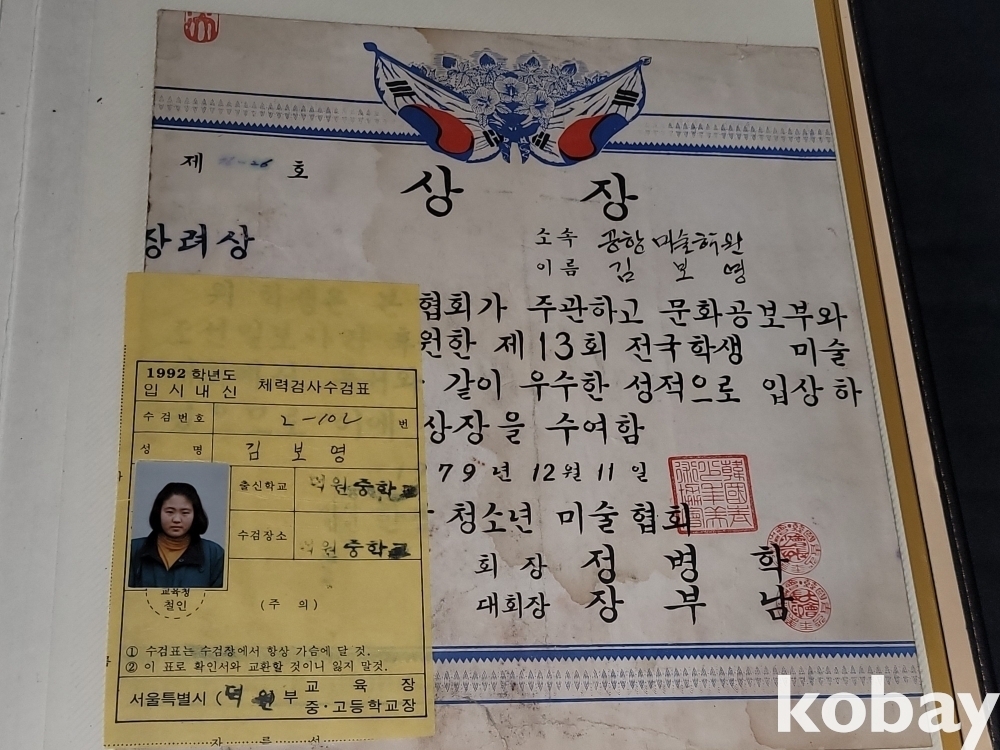 제 호
상 장
장려상
소속 공항미술학원
이름 김 보 영
협회가 주관하고 문화공보부와
원한 제13회 전국학생 미술
같이 우수한 성적으로 입상하
상장을 수여함
79년 12월 11일
청소년 미술협회
회 장 정 병 학
대회장 장 부 남
1992 학년도
입 시 내 신 체력검사수검표
수검번호 2-102 번
성 명 김 보 영
출신학교 원중학교
수검장소 원중학교
교육청
철인
(주 의)
① 수검표는 수검장에서 항상 가슴에 달 것.
② 이 표로 확인서와 교환할 것이니 잃지 말것.
서울특별시 (덕원부 교 육 장
중·고등학교장
자 르 선
kobay